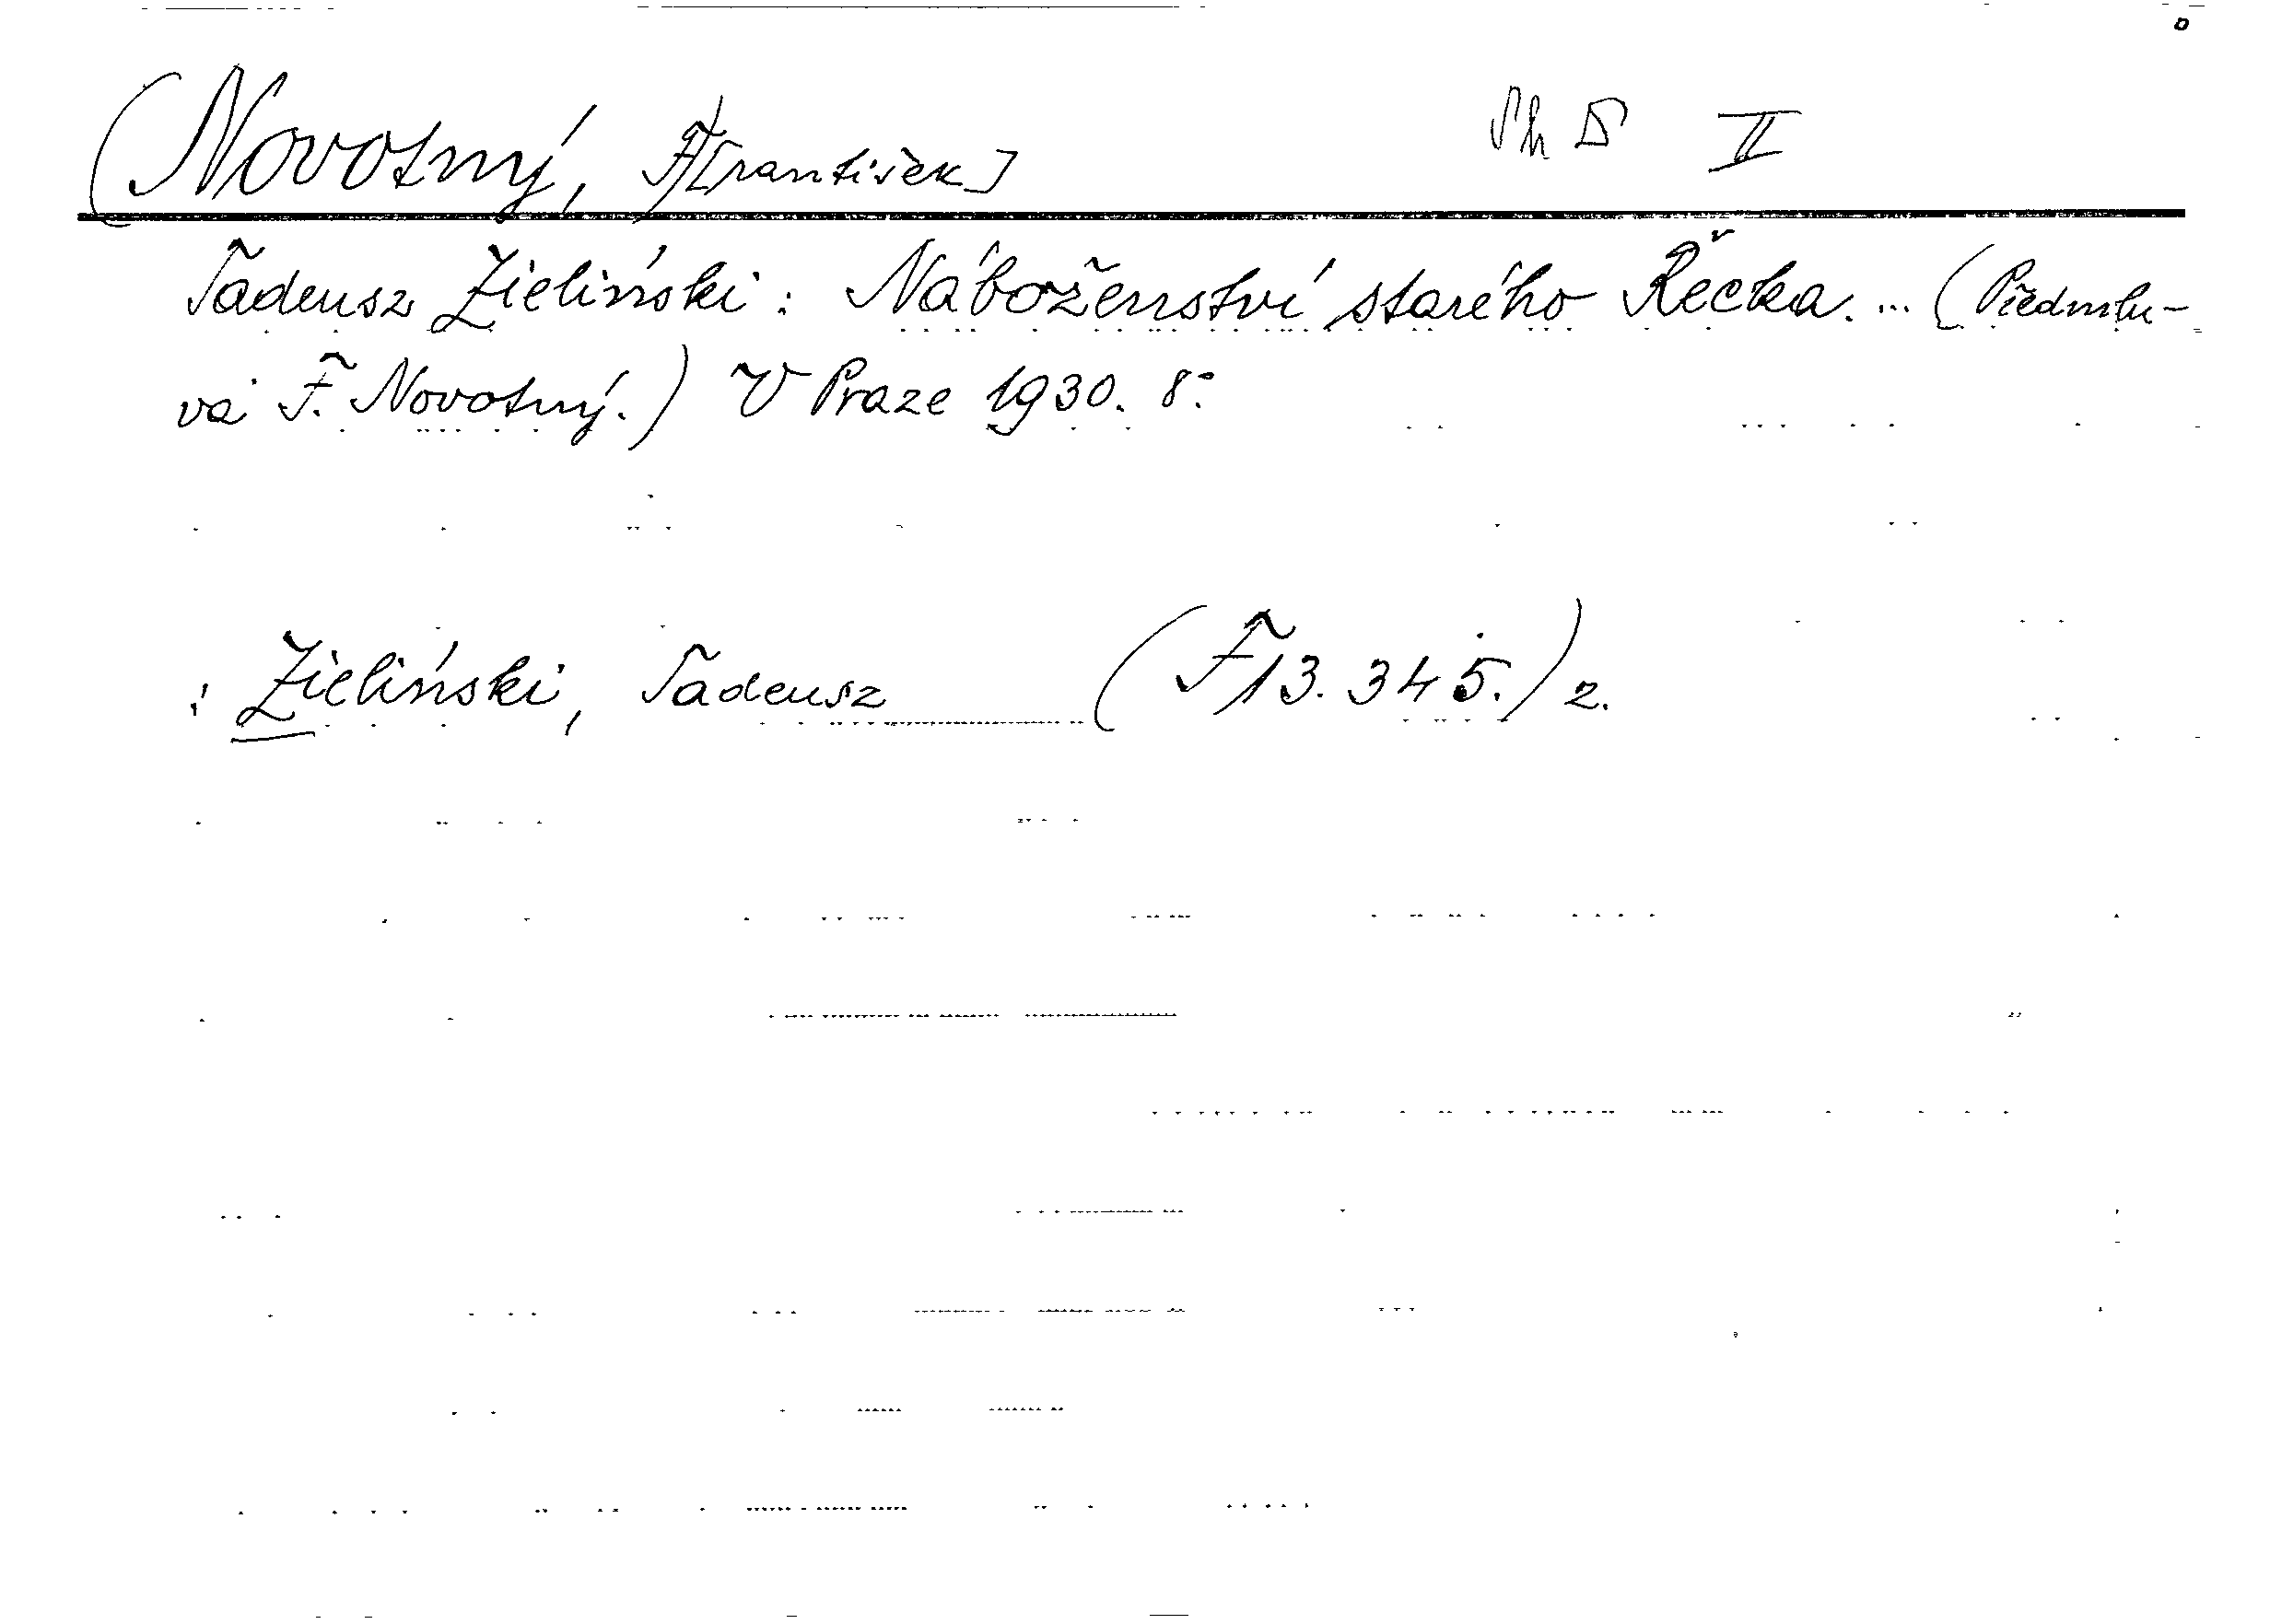 (Novotný, F[rantišek]
II
Tadeusz Zieliński: Náboženství starého Řecka. ... (Předmlu-
vá F. Novotný.) V Praze 1930. 8°.
: Zieliński, Tadeusz (F 13.345.) 2.